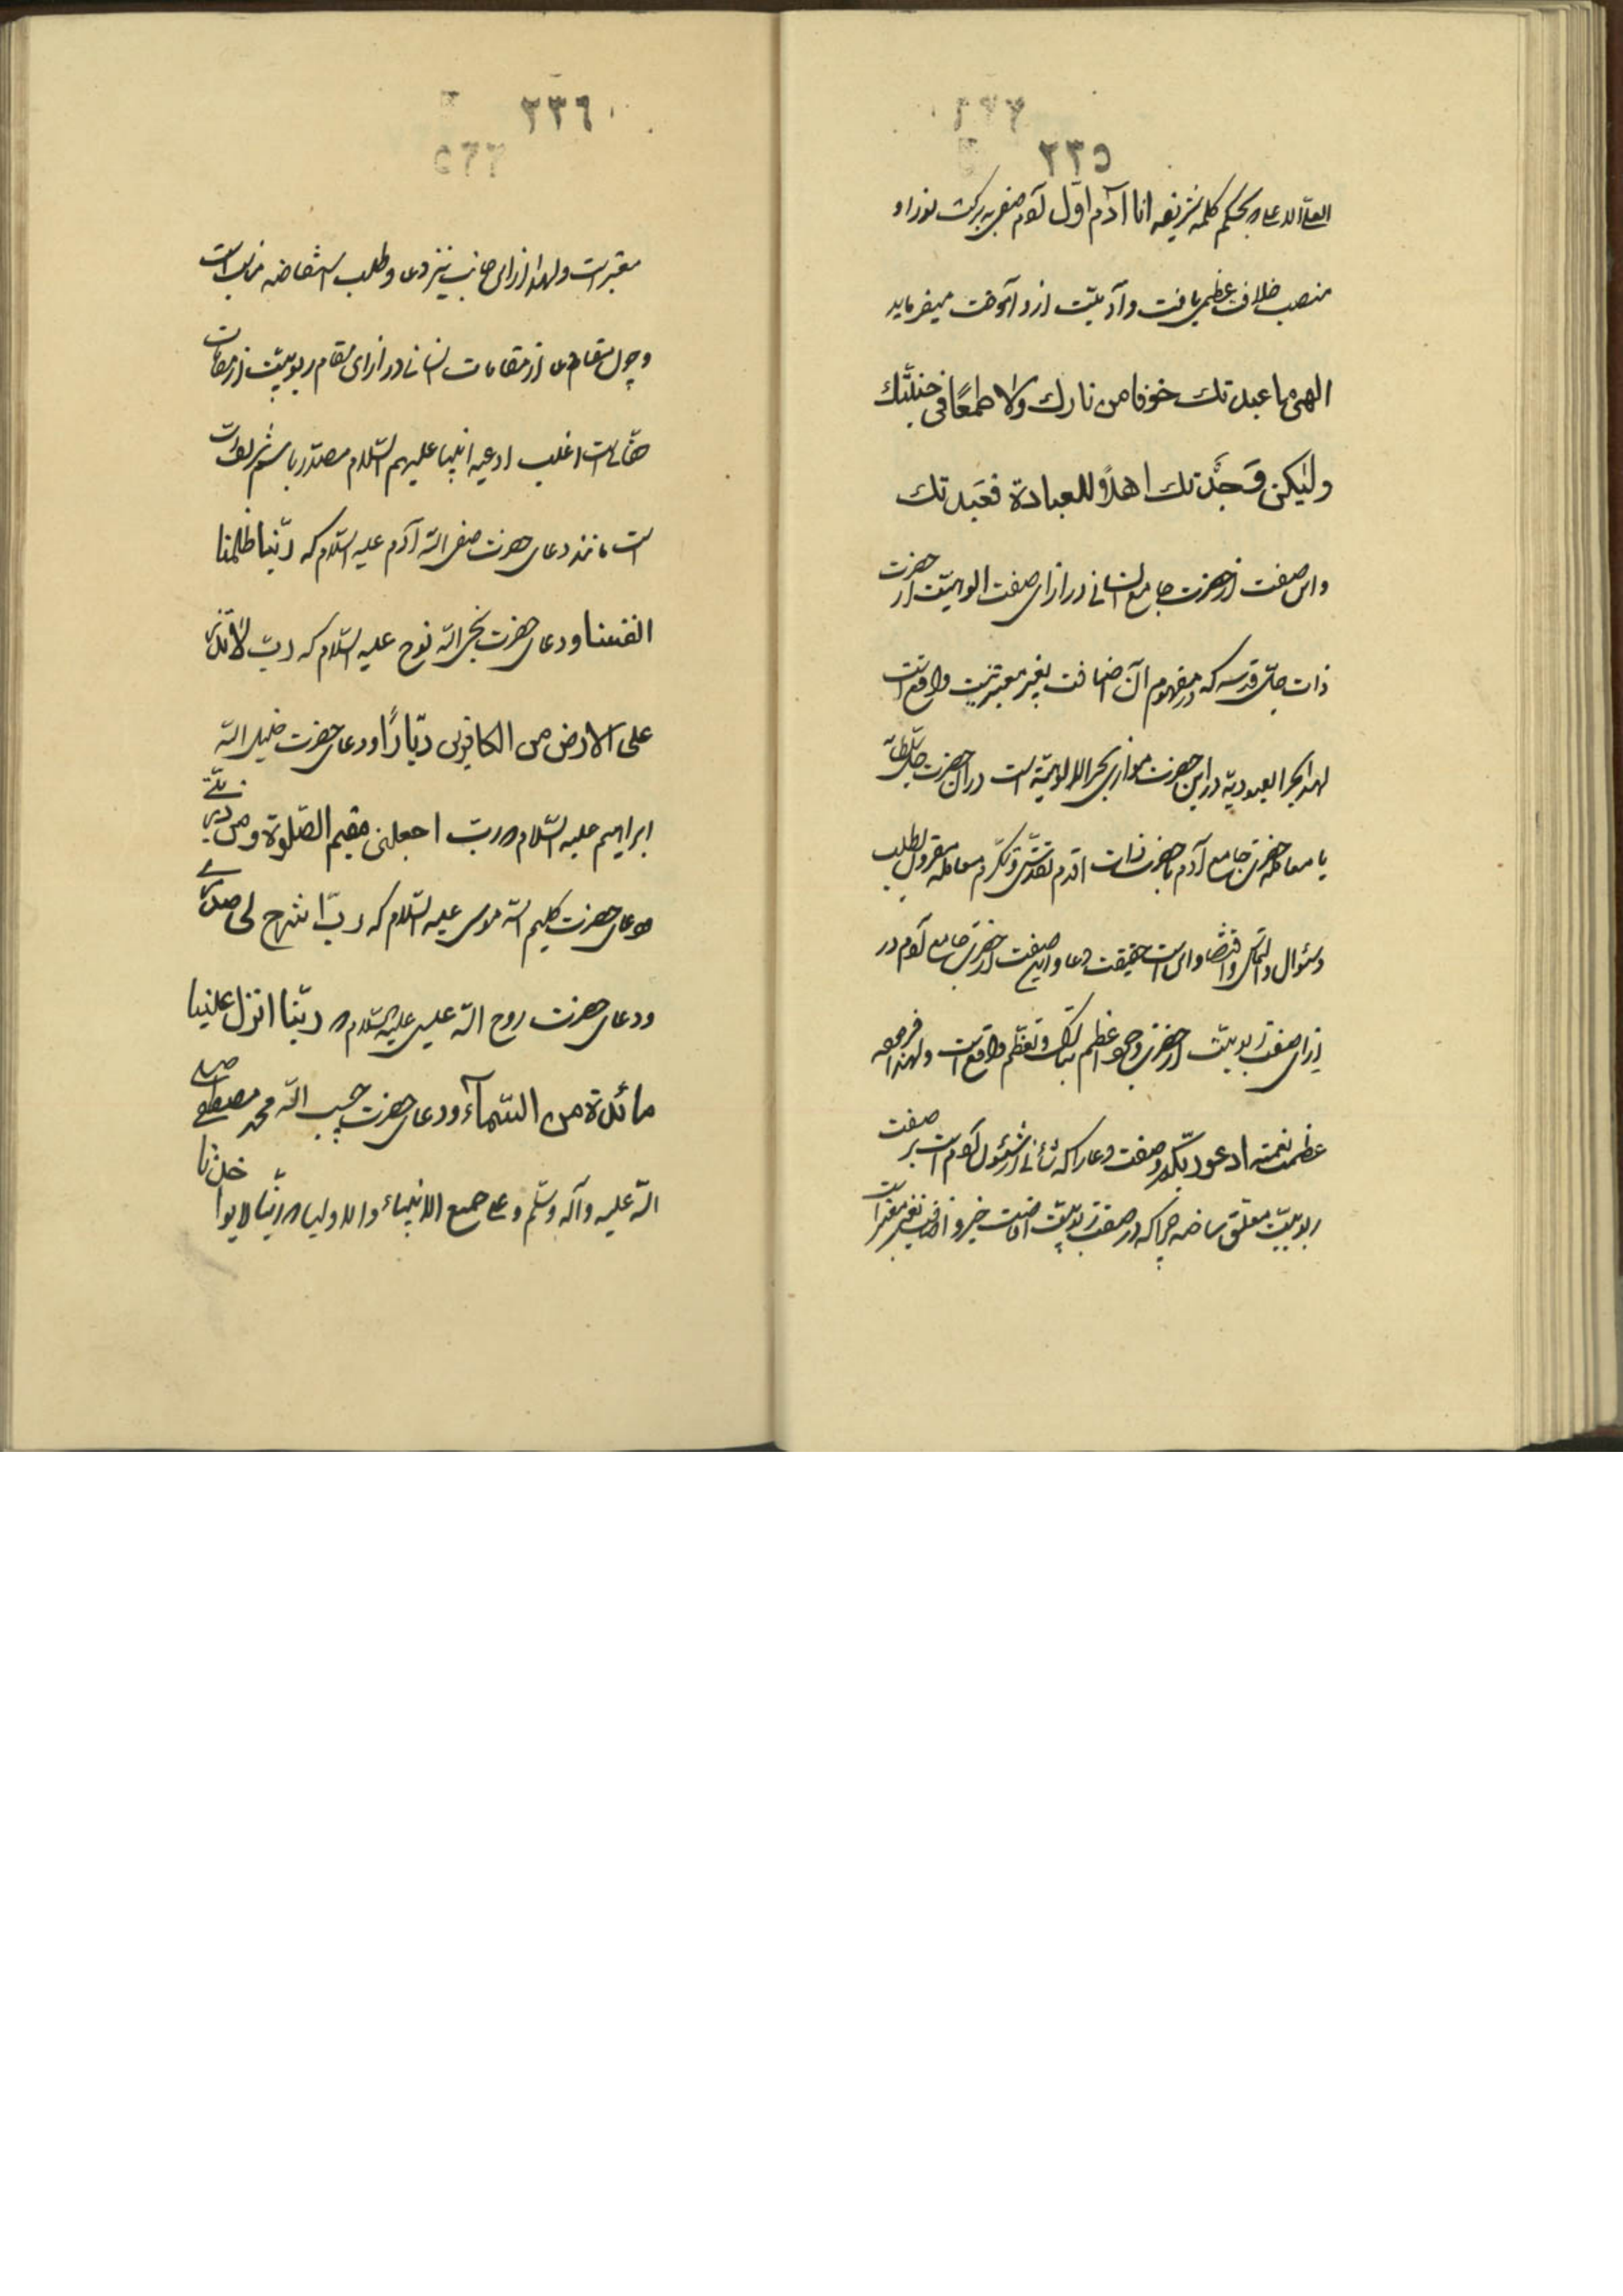 ٢٣٥
العلّ الاعلی بحکم کلمه شریفه انا آدم اوّل آدم صفی ببرکت نور او
منصب خلافت عظمی یافت و آدمیّت ازو آموخت میفرماید
الهی ما عبدتك خوفا من نارك ولا طمعًا فی جنّتك
ولیکن وَجَدْتك اهلًا للعبادة فعَبدتك
واین صفت از حضرت جامع انسانی در ازای صفت الوهیّت از حضرت
ذات جلّ قدسه که در مفهوم آن اضافت بغیر معتبر نیست واقع است
لهذا بحر العبودیة در این حضرت موازی بحر الالوهیّة است در آن حضرت جلّ سلطانه
یا معامله حضرت جامع آدم با حضرت ذات اقدم تقدّس وتکرّم معامله مقرون بطلب
وسئوال والتماس واقتضا و این است حقیقت دعا و این صفت از حضرت جامع آدم در
ازای صفت ربوبیّت از حضرت وجود اعظم تبارك وتعظّم واقع است ولهذا فرموده
عظمت نعمته ادعوا ربّکم وصفت دعا را که شأنی از شئون آدم است بر صفت
ربوبیّت معلّق ساخته چرا که در صفت ربوبیّت افاضت خیر و اضافت بغیر معتبر است
٢٣٦
معتبر است ولهذا از ازای جانب نیز دعا وطلب استفاضه مناسب است
وچون مقام دعا از مقامات انسانی در ازای مقام ربوبیّت از مقامات
حقانی است اغلب ادعیه انبیا علیهم السّلام مصدّر باسم شریف ربّ
است مانند دعای حضرت صفی الله آدم علیه السّلام که ربّنا ظلمنا
انفسنا ودعای حضرت نجی الله نوح علیه السّلام که ربّ لا تذر
علی الارض من الکافرین دیّارًا ودعای حضرت خلیل الله
ابراهیم علیه السّلام که ربّ اجعلنی مقیم الصّلوة ومن ذرّیّتی
ودعای حضرت کلیم الله موسی علیه السّلام که ربّ اشرح لی صدری
ودعای حضرت روح الله عیسی علیه السّلام که ربّنا انزل علینا
مائدة من السّماء ودعای حضرت حبیب الله محمد مصطفی صلی
الله علیه وآله وسلّم وعلی جمیع الانبیاء والاولیاء که ربّنا لا تؤاخذنا